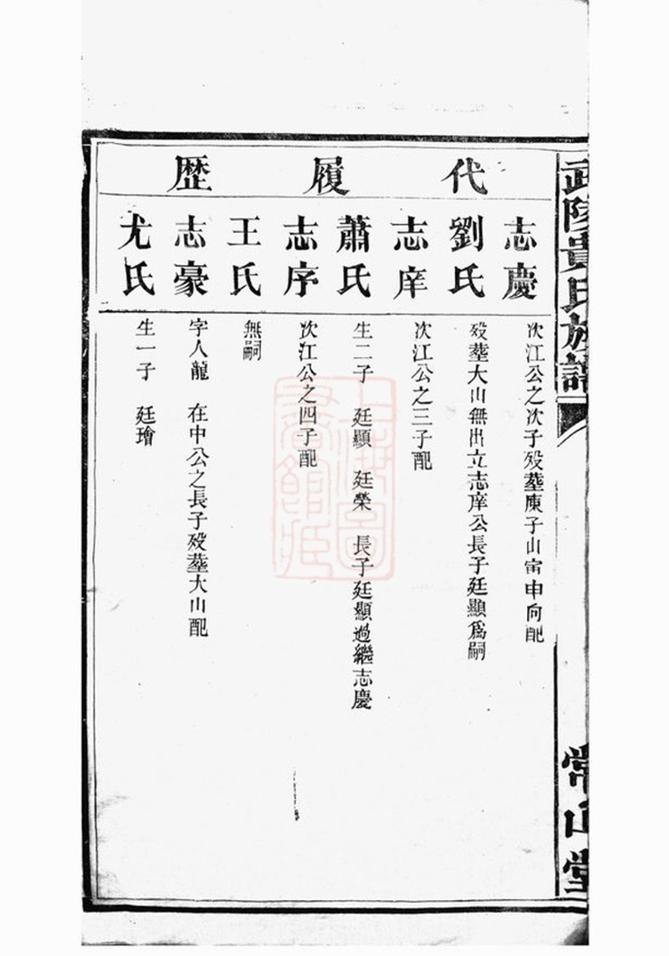 武陵貴氏族譜
常山堂
代履歷
志慶
次江公之次子歿塟庚子山寅申向配
劉氏
歿塟大山無出立志庠公長子廷顯爲嗣
志庠
次江公之三子配
蕭氏
生二子 廷顯 廷榮 長子廷顯過繼志慶
志序
次江公之四子配
王氏
無嗣
志豪
字人龍 在中公之長子歿塟大山配
尤氏
生一子 廷璿